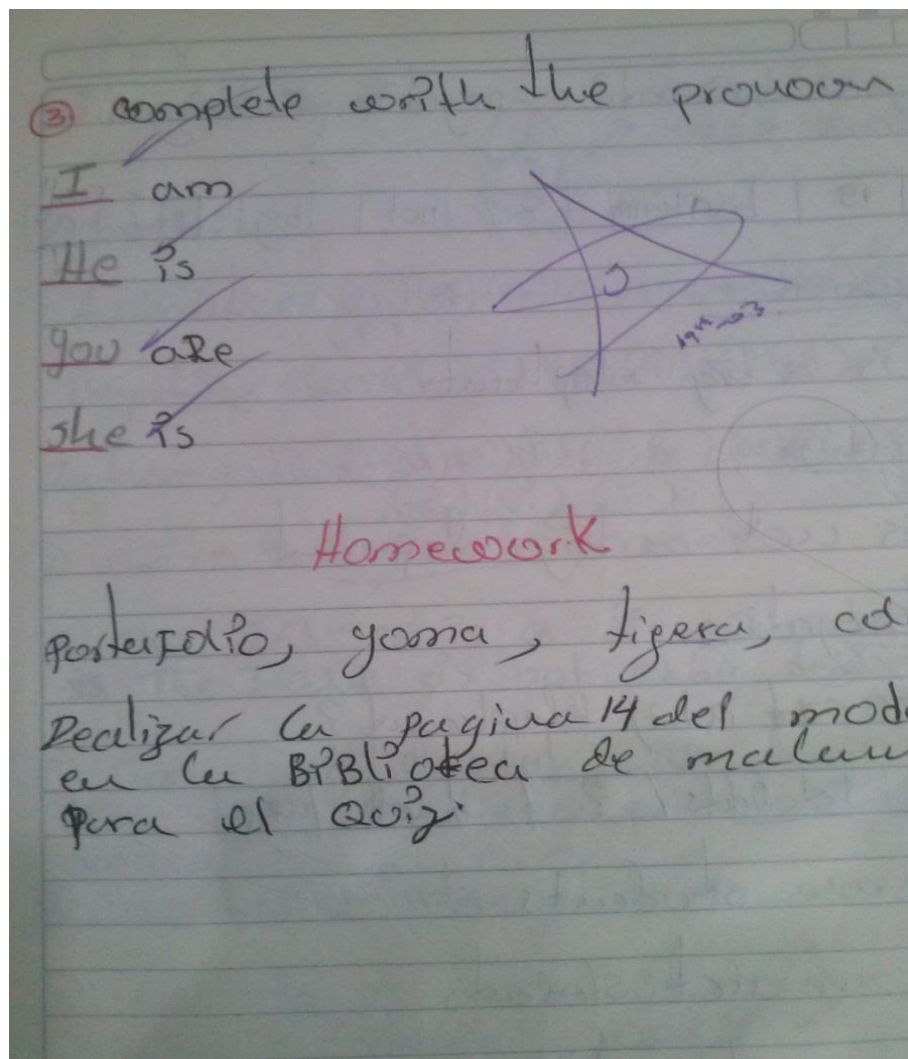 ③ complete with the pronoun
I am
He is
you are
she is
Homework
portafolio, goma, tigera,
Realizar la pagina 14 del
en la BiBliotea de
para el Quiz.